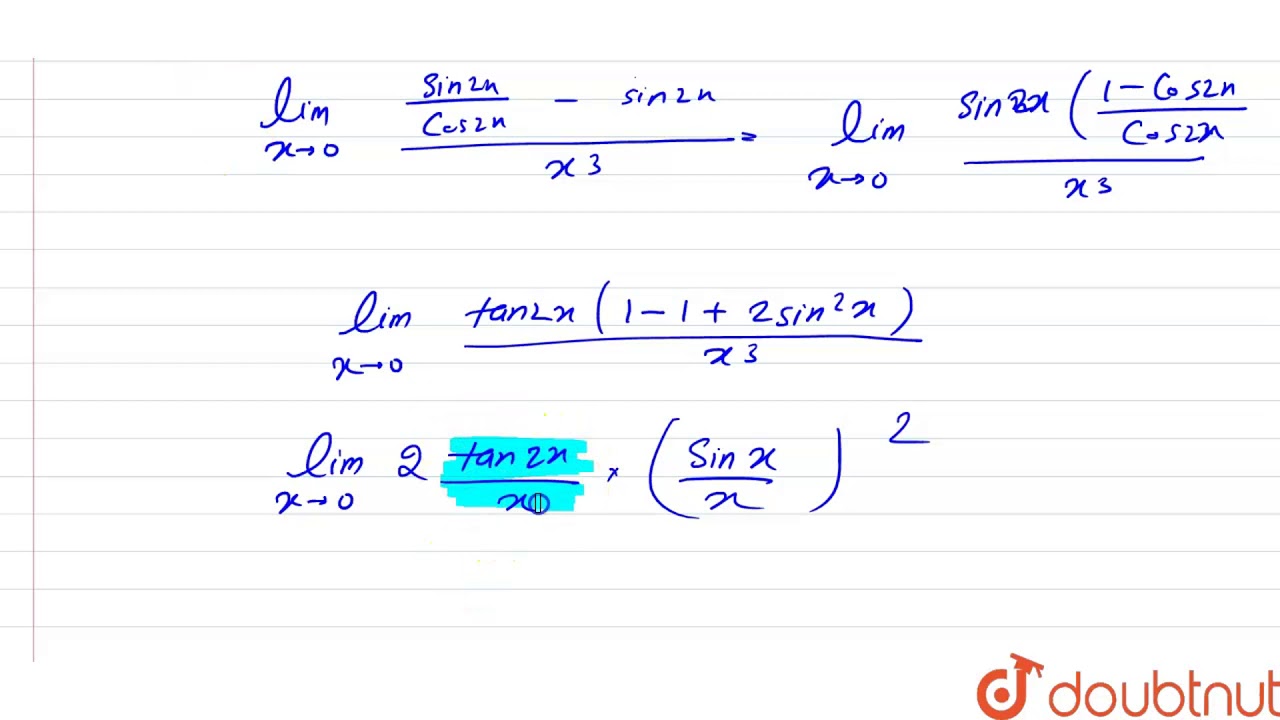 lim x→0 (sin2x/cos2x - sin2x)/x3 = lim x→0 sin2x(1-cos2x/cos2x/x3
lim x→0 tan2x(1-1+2sin²x)/x3
lim x→0 2 tan2x/x × (sinx/x)²
doubtnut